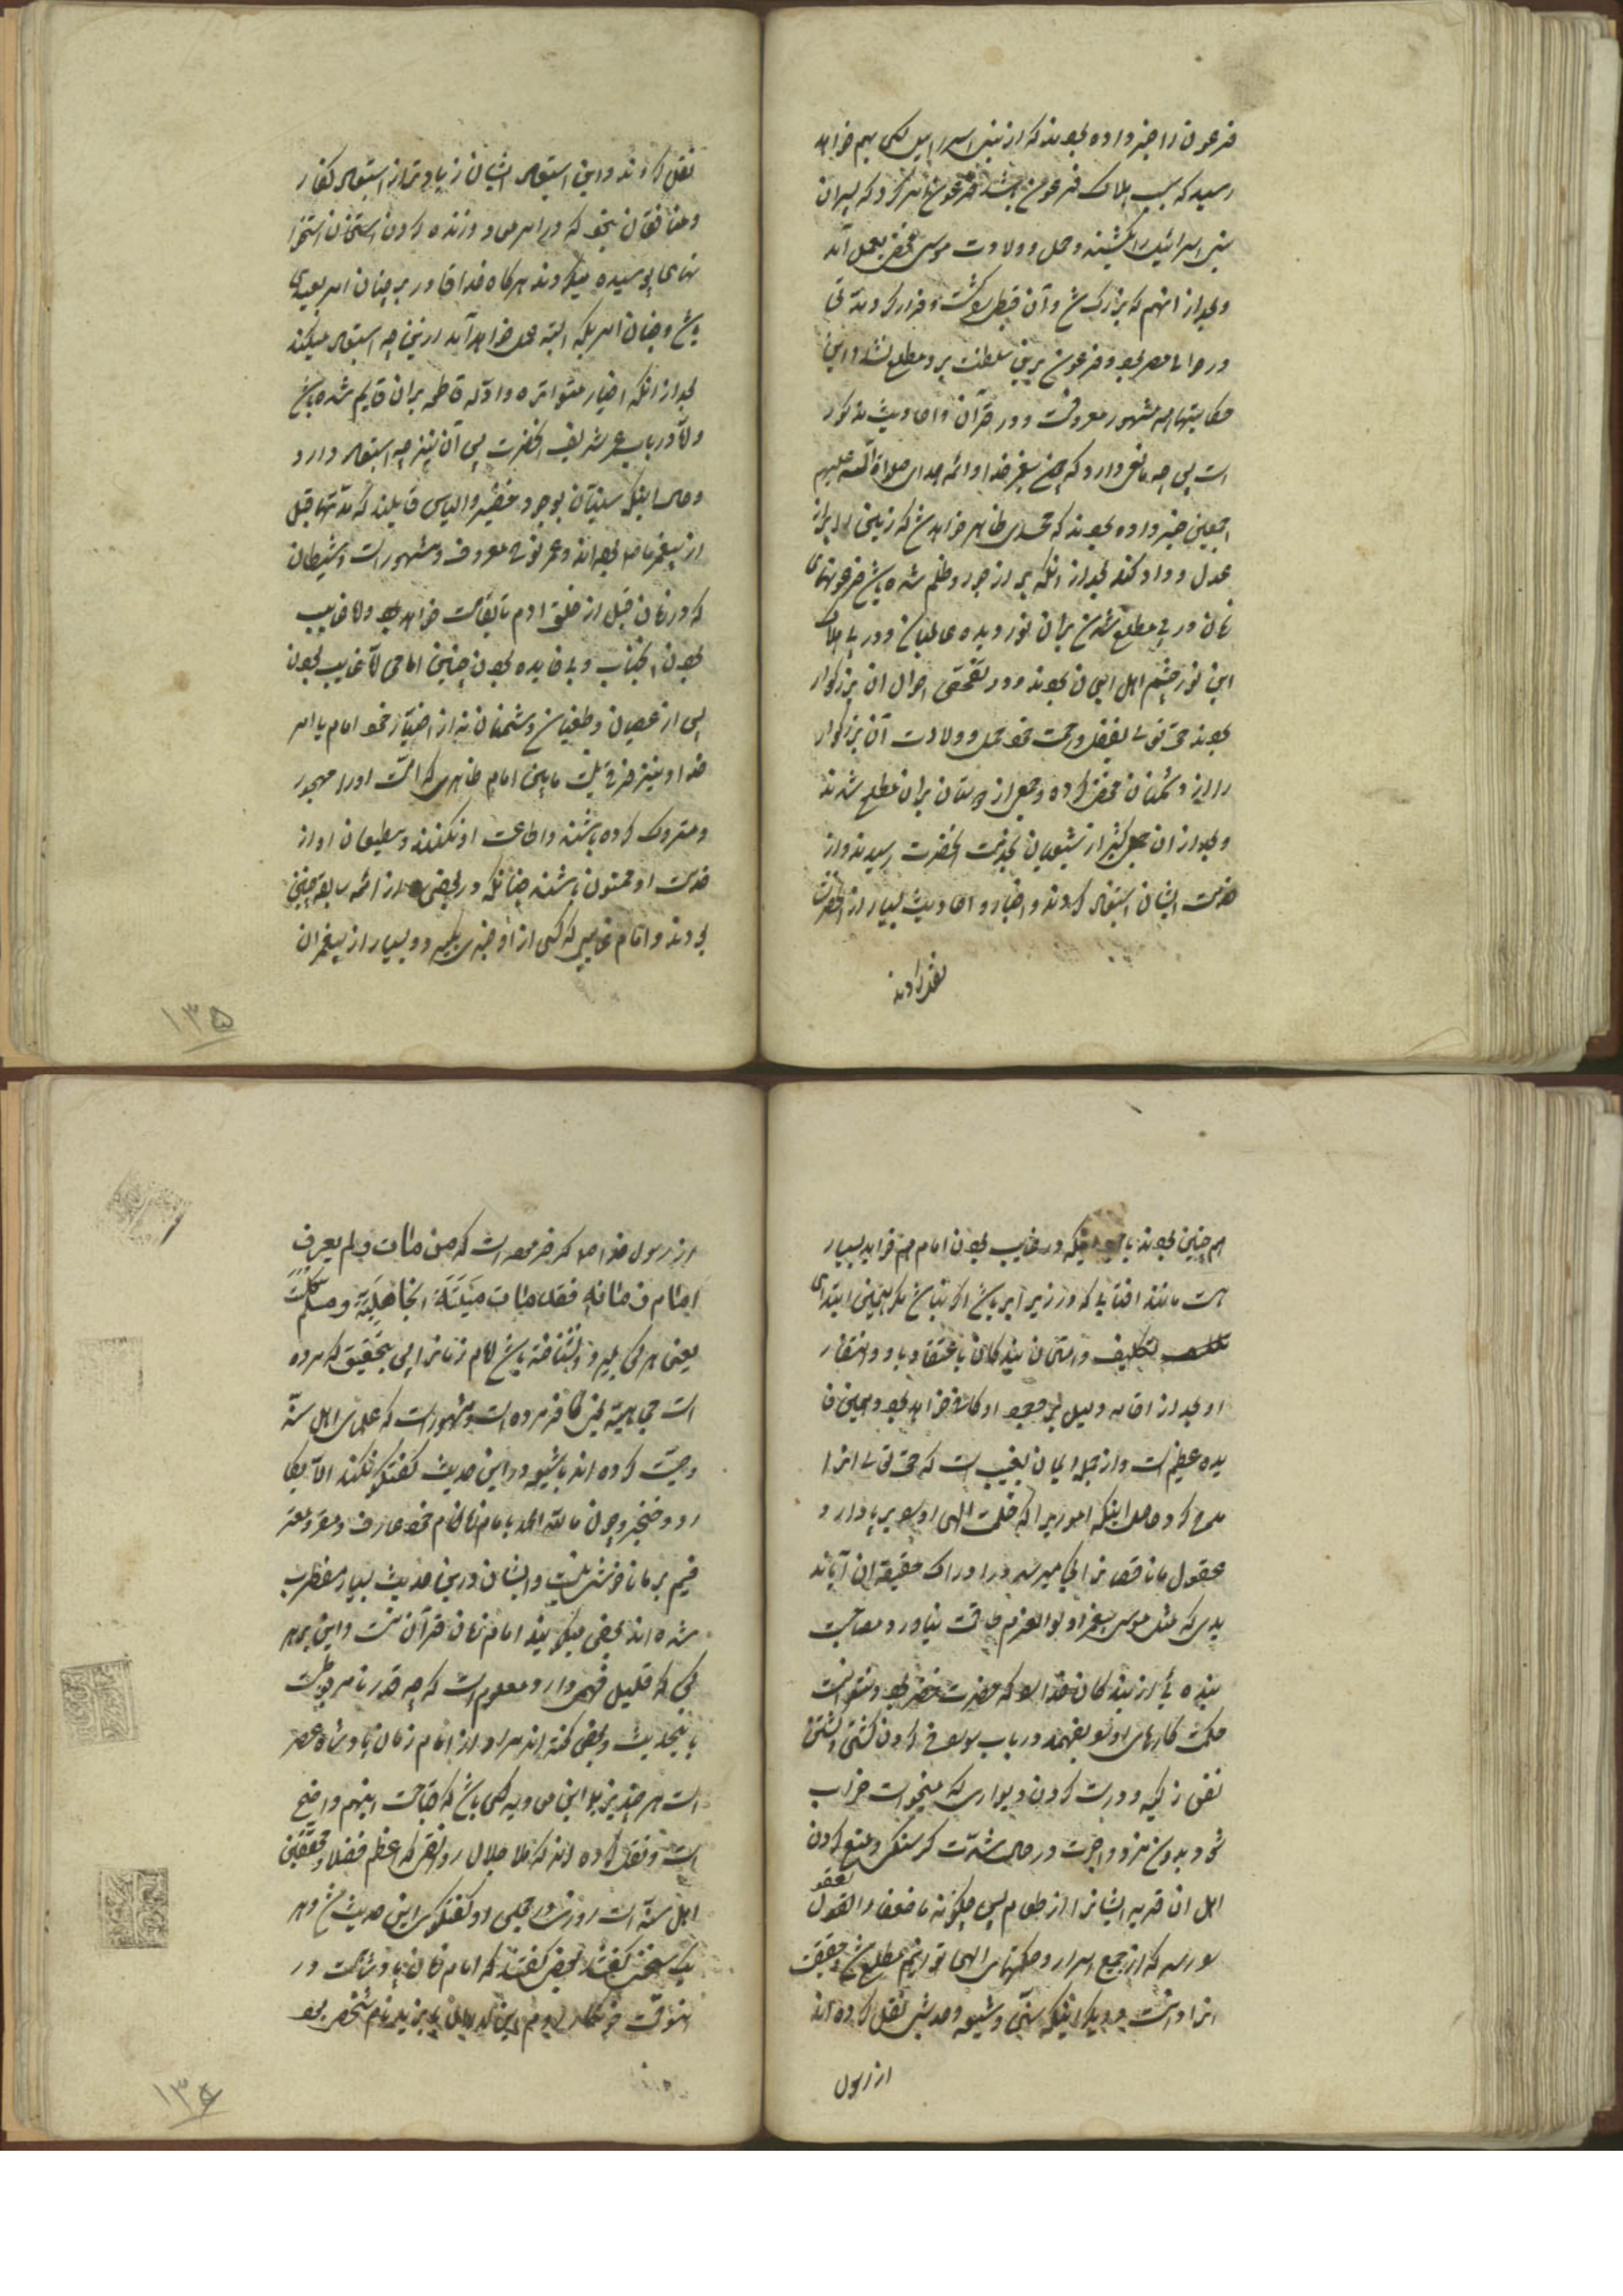 فرعون را خبر داده بودند که از بنی اسرائیل کسی بهم خواهد
رسید که سبب هلاک فرعون باشد فرعون امر کرد که پسران
بنی اسرائیل را بکشند و حمل و ولادت موسی مخفی بعمل آمد
و بعد از انهم که بزرگ شد و آن قبطی را کشت و فرار کرد مدتی
در حوالی مصر بود و فرعون برین سلطنت برو مطلع نشد و این
حکایتها همه مشهور معروفست و در قرآن و احادیث مذکور
است پس چه مانعی دارد که چون پیغمبر خدا و ائمه هدی صلواة الله علیهم
اجمعین خبر داده بودند که مهدی ظاهر خواهد شد که زمین را پر از
عدل و داد کند بعد از انکه پر از جور و ظلم شده باشد فرعونهای
زمان در پی مطلع شدن بران نور دیده عالمیان و در پی هلاک
این نور چشم اهل ایمان بودند و در تفحص احوال ان بزرگوار
بودند حق تعالی بفضل و رحمت خود حمل و ولادت آن بزرگوار
را از دشمنان مخفی کرده و جمعی از دوستان بران مطلع شدند
و بعد از ان جمعی کثیر از شیعیان بخدمت انحضرت رسیدند و از
خدمت ایشان استفاده کردند و اخبار و احادیث بسیار از انحضرت
نقل کردند
نقل کردند و این استبعاد ایشان زیاد تر از استبعاد کفار
و منافقان نیست که در امر معاد و زنده کردن استخوان
نهای پوسیده میکردند هرگاه خدا قادر بر چنان امر بعیدی
باشد و چنان امر بلکه البته بعمل خواهد آمد درین چه استبعاد میکنند
بعد از انکه اخبار متواتره و ادله قاطعه بران قایم شده باشد
و الا در باب عمر شریف انحضرت پس آن نیز چه استبعاد دارد
و حال اینکه سنیان بوجود خضر و الیاس قایلند که مدتها قبل
از پیغمبر ما بوده اند و عمر نوح معروف و مشهور است و شیطان
که در زمان قبل از خلق ادم تا قیامت خواهد بود و اما غایب
بودن انجناب و بی فایده بودن چنین امامی الا غایب بودن
پس از عصیان و طغیان دشمنان نه از اختیار خود امام یا امر
خدا و نیز فرقی نیست مابین امام ظاهری که امت اورا مهجور
و متروک کرده باشند و اطاعت او نکنند و مطیعان او از
خدمت او ممنون باشند چنانکه در بعضی از ائمه سابقه چنین
بودند و امام غایبی که کسی از او خبری یابد و بسیار از پیغمبران
۱۳۵
هم چنین بودند با وجود اینکه در غایب بودن امام هم فواید بسیار
هست مانند افتابی که در زیر ابر باشد اگر نباشد مگر همین ابتدای
تکلیف و امتحان بندگان باعتقاد باو و انتظار
او بعد از اقامه دلیل بر وجود او کافی خواهد بود و همین فا
یده عظیم است و از جمله ایمان بغیب است که حق تعالی انرا
مدح کرده و حاصل اینکه اموریرا که حکمت الهی او سو بر پا دارد
عقول ما ناقصانرا کجا میرسد در ادراک حقیقة ان آیا ند
یدی که مثل موسی پیغمبر اولوالعزم طاقت نیاورد و مصاحبت
بنده ئی از بندگان خدا را که حضرت خضر بود و نتوانست
حکمت کارهای او را بفهمد در باب سوراخ کردن کشتی و کشتن
نفس زکیه و درست کردن دیواری که میخواست خراب
شود بدون مزد و اجرت در حال شدت گرسنگی و منع کردن
اهل ان قریه ایشانرا از طعام پس چگونه ما ضعفاء العقول
بعقد
را رسد که از جمیع اسرار و حکمتهای الهی توانیم مطلع شد و حقیقت
انرا دانست و دیگر اینکه سنی و شیعه و حدیثی نقل کرده اند
از رسول
از رسول خدا صلعم که فرموده است که من مات و لم یعرف
امام زمانه فقد مات میتة الجاهلیة و مسلم
یعنی هر کس بمیرد و نشناخته باشد امام زمانرا پس بتحقیق که مرده
است جاهلیة یعنی کافر مرده است و مشهور است که علمای اهل سنة
وصیت کرده اند با شیعه در این حدیث گفتگو نکنند الا بکا
رد و خنجر و چون ما لله الحمد بامام زمان خود عارف و مقر و معتر
فیم بر ما ناخوشی نیست و ایشان درین حدیث بسیار مضطرب
شده اند بعضی میگویند امام زمان قرآن است و این بر هر
کس که قلیل فهمی دارد معلوم است که چه قدر نا مربوطست
باینحدیث و بعضی گفته اند مراد از امام زمان پادشاه عصر
است هر چند یزید و ابن معاویه کسی باشد که قباحت اینهم واضح
است و نقل کرده اند که ملا جلال که اعظم فضلا و محققین
اهل سنة است روزی در مجلسی در گفتگوی این حدیث شد و هر
یک سخنی گفتند بعضی گفتند که امام زمان پادشاهست در
۱۳۶